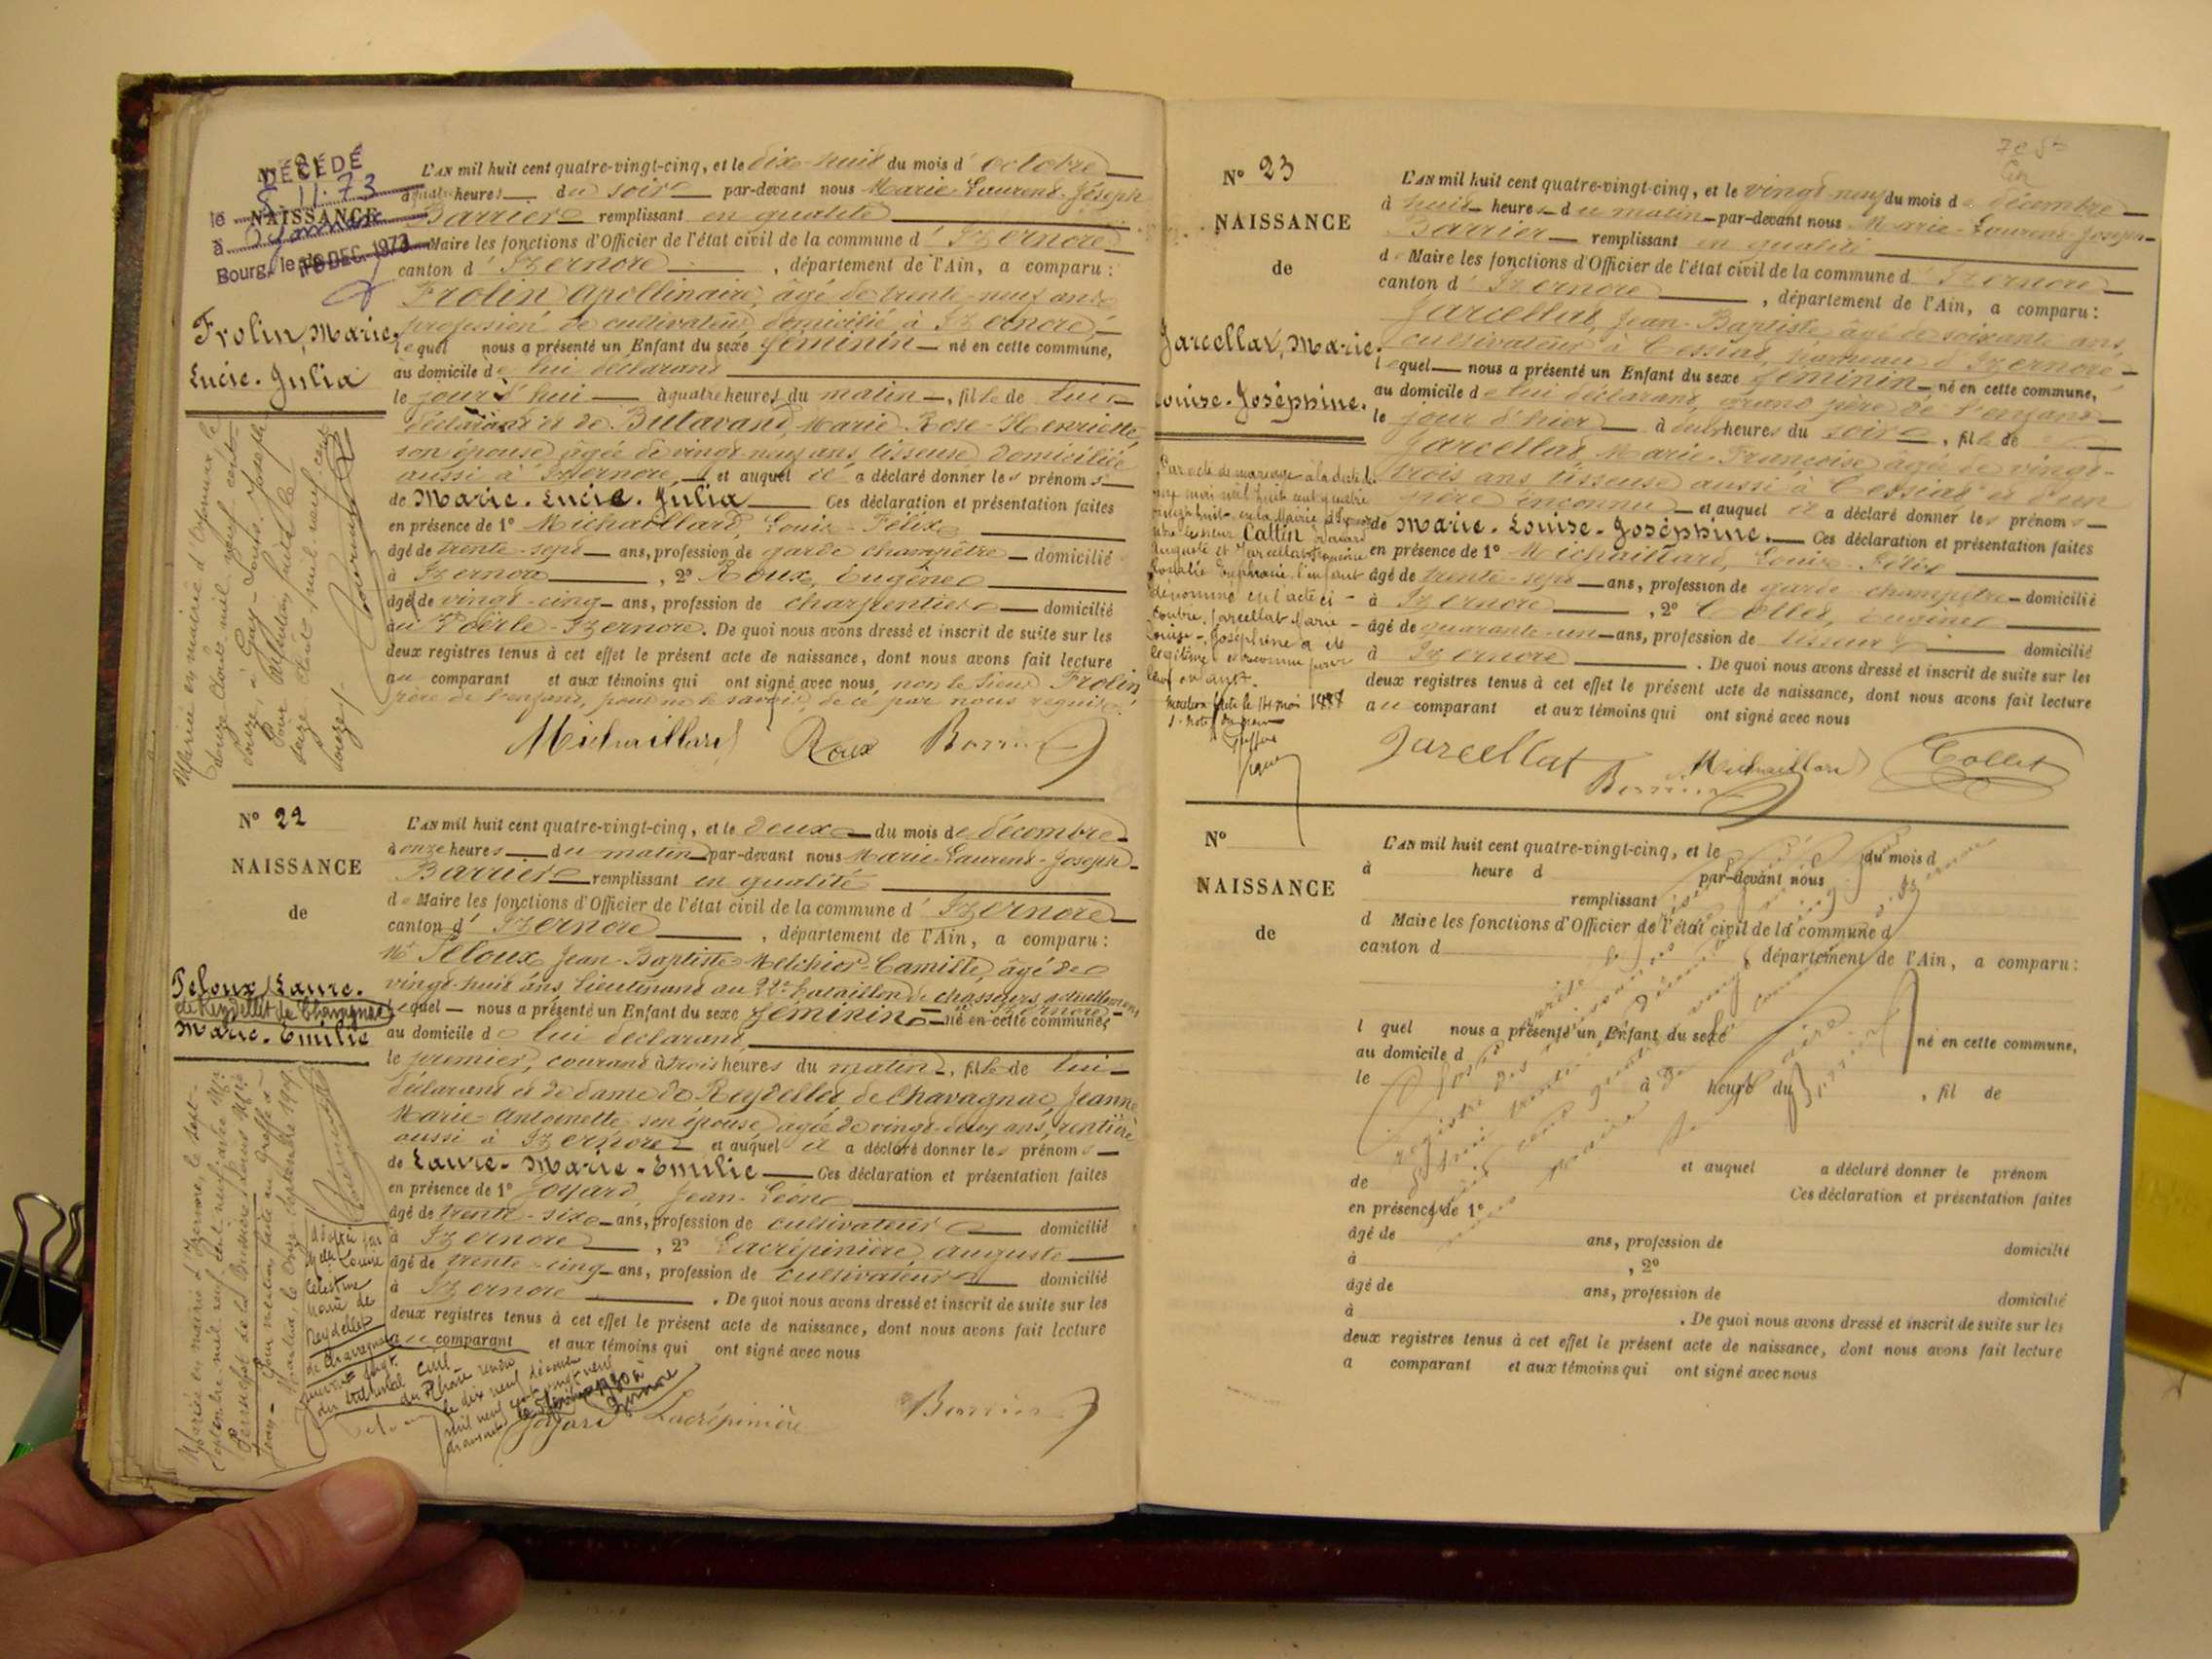 DÉCÉDÉ
le 5.11.73
NAISSANCE
à Oyonnax
Bourg, le 18 DEC. 1973
Frolin, Marie.
Lucie. Julia
L'AN mil huit cent quatre-vingt-cinq, et le dix-huit du mois d'octobre
à quatre heures du soir par-devant nous Marie-Laurent-Joseph
Barrier remplissant en qualité
de Maire les fonctions d'Officier de l'état civil de la commune d'Izernore
canton d'Izernore, département de l'Ain, a comparu:
Frolin Apollinaire, âgé de trente-neuf ans
profession de cultivateur domicilié à Izernore,
lequel nous a présenté un Enfant du sexe féminin né en cette commune,
au domicile de lui déclarant
le jour d'hui à quatre heures du matin, fille de lui
déclarant et de Butavand, Marie Rose-Henriette,
son épouse âgée de vingt-neuf ans, tisseuse domiciliée
aussi à Izernore, et auquel il a déclaré donner les prénoms
de Marie. Lucie. Julia Ces déclaration et présentation faites
en présence de 1° Michaillard, Louis-Félix
âgé de trente-sept ans, profession de garde champêtre domicilié
à Izernore, 2° Roux, Eugène
âgé de vingt-cinq ans, profession de charpentier domicilié
au Voërle-Izernore. De quoi nous avons dressé et inscrit de suite sur les
deux registres tenus à cet effet le présent acte de naissance, dont nous avons fait lecture
au comparant et aux témoins qui ont signé avec nous, non le sieur Frolin
père de l'enfant, pour ne le savoir, de ce par nous requis.
Michaillard Roux Barrier
Mariée en mairie d'Oyonnax le
douze Août mil neuf cent
onze, à Guy-Louis-Joseph
N° 22
NAISSANCE
de
Peloux, Laure.
de Reydellet de Chavagnac
Marie. Emilie
L'AN mil huit cent quatre-vingt-cinq, et le deux du mois de décembre
à onze heures du matin par-devant nous Marie-Laurent-Joseph
Barrier remplissant en qualité
de Maire les fonctions d'Officier de l'état civil de la commune d'Izernore
canton d'Izernore, département de l'Ain, a comparu:
Mr Peloux Jean-Baptiste Melchior-Camille, âgé de
vingt-huit ans, lieutenant au 22e bataillon de chasseurs, actuellement
à Izernore
lequel nous a présenté un Enfant du sexe féminin né en cette commune,
au domicile de lui déclarant
le premier, courant à trois heures du matin, fille de lui
déclarant et de dame de Reydellet de Chavagnac, Jeanne
Marie-Antoinette son épouse, âgée de vingt-deux ans, rentière
aussi à Izernore et auquel il a déclaré donner les prénoms
de Laure-Marie-Emilie Ces déclaration et présentation faites
en présence de 1° Joyard, Jean-Léon
âgé de trente-six ans, profession de cultivateur domicilié
à Izernore, 2° Lacrépinière, Auguste
âgé de trente-cinq ans, profession de cultivateur domicilié
à Izernore. De quoi nous avons dressé et inscrit de suite sur les
deux registres tenus à cet effet le présent acte de naissance, dont nous avons fait lecture
au comparant et aux témoins qui ont signé avec nous
Joyard Lacrépinière Barrier
Mariée en mairie d'Izernore, le sept
septembre mil neuf cent neuf, avec Mr
Adoptée par
Mlle Louise
Célestine
Marie de
Reydellet
de Chavagnac
suivant jugt.
du tribunal civil
du Rhône rendu
le dix neuf décembre
mil neuf cent vingt neuf
N° 23
NAISSANCE
de
Jarcellat, Marie.
Louise-Joséphine.
L'AN mil huit cent quatre-vingt-cinq, et le vingt-neuf du mois de décembre
à huit heures du matin par-devant nous Marie-Laurent-Joseph
Barrier remplissant en qualité
de Maire les fonctions d'Officier de l'état civil de la commune d'Izernore
canton d'Izernore, département de l'Ain, a comparu:
Jarcellat, Jean-Baptiste âgé de soixante ans,
cultivateur à Cessiat, hameau d'Izernore
lequel nous a présenté un Enfant du sexe féminin né en cette commune,
au domicile de lui déclarant, grand père de l'enfant
le jour d'hier à deux heures du soir, fille de
Jarcellat Marie-Françoise âgée de vingt-
trois ans tisseuse aussi à Cessiat et d'un
père inconnu et auquel il a déclaré donner les prénoms
de Marie. Louise-Joséphine. Ces déclaration et présentation faites
en présence de 1° Michaillard, Louis-Félix
âgé de trente-sept ans, profession de garde champêtre domicilié
à Izernore, 2° Collet, Eugène
âgé de quarante-un ans, profession de tisseur domicilié
à Izernore. De quoi nous avons dressé et inscrit de suite sur les
deux registres tenus à cet effet le présent acte de naissance, dont nous avons fait lecture
au comparant et aux témoins qui ont signé avec nous
Jarcellat Barrier Michaillard Collet
Par acte de mariage à la date du
neuf mai mil huit cent quatre
vingt huit en la Mairie d'Izernore
entre le sieur Callin
Auguste et Jarcellat Françoise
l'enfant
dénommé en l'acte ci-
contre, Jarcellat Marie-
Louise-Joséphine a été
légitimé et reconnu pour
leur enfant.
Mention faite le 14 mai 1888
N°
NAISSANCE
de
L'AN mil huit cent quatre-vingt-cinq, et le du mois d
à heure d par-devant nous
remplissant
d Maire les fonctions d'Officier de l'état civil de la commune d
canton d département de l'Ain, a comparu:
l quel nous a présenté un Enfant du sexe né en cette commune,
au domicile d
le à heure du, fil de
et auquel a déclaré donner le prénom
de Ces déclaration et présentation faites
en présence de 1°
âgé de ans, profession de domicilié
à, 2°
âgé de ans, profession de domicilié
à. De quoi nous avons dressé et inscrit de suite sur les
deux registres tenus à cet effet le présent acte de naissance, dont nous avons fait lecture
a comparant et aux témoins qui ont signé avec nous